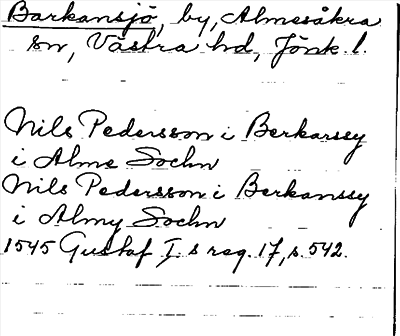 Barkansjö, by, Almesåkra
sn, Västra hd, Jönk. l.
Nils Pedersson i Berkarssy
i Alme Sochn
Nils Pedersson i Berkanssy
i Almy Sochn
1545 Gustaf I.s reg. 17, s. 542.